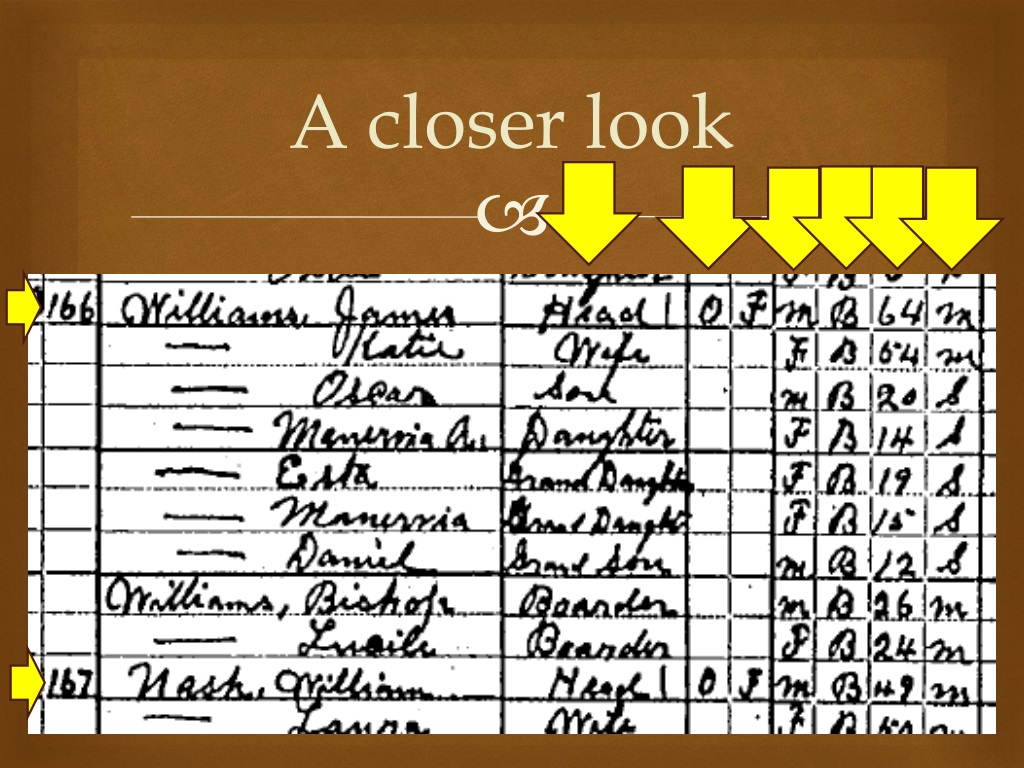 A closer look
166 Williams, James Head 1 O F m B 64 m
— Katie Wife F B 54 m
— Oscar Son m B 20 S
— Manervia A. Daughter F B 14 S
— Esta Grand Daughte F B 19 S
— Manervia Grand Daught F B 15 S
— Daniel Grand Son m B 12 S
Williams, Bishop Boarder m B 26 m
— Lucile Boarder F B 24 m
167 Nash, William Head 1 O F m B 49 m
— Laura Wife F B m